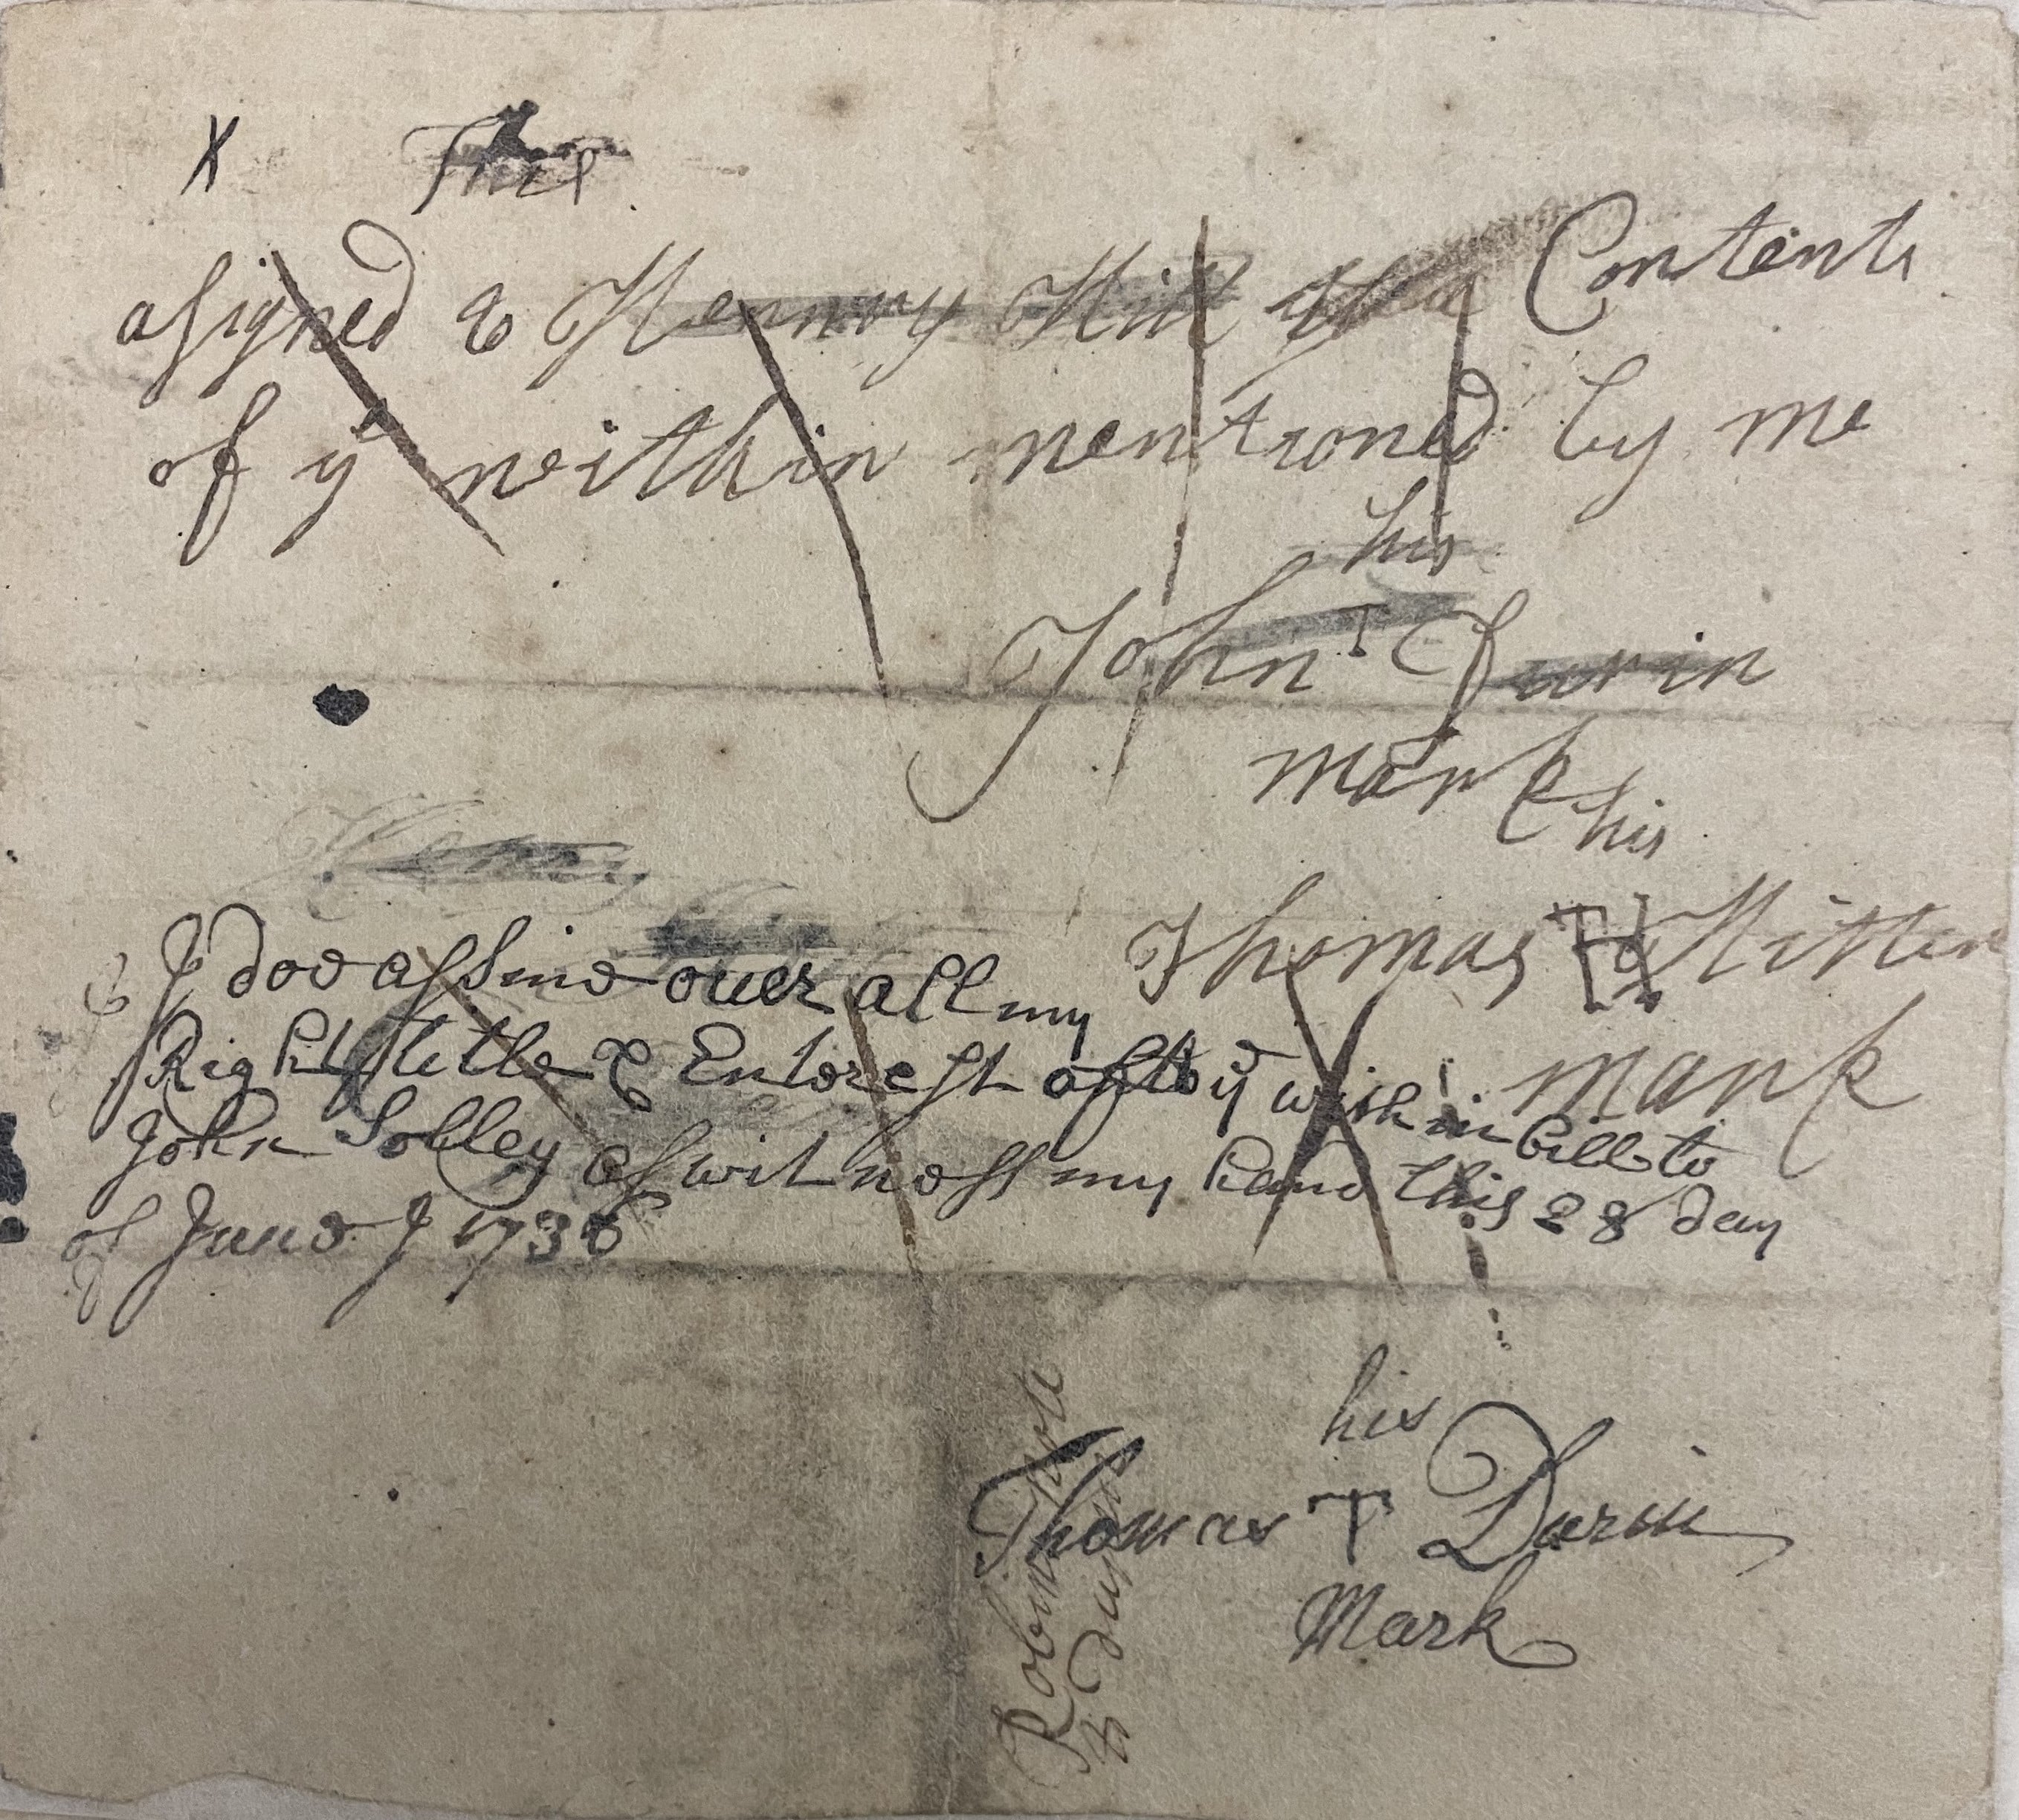 X This
asigned to Hennry Hill the Contents
of ye neithin mentioned by me
his
John T Durin
mark
his
Thomas TH Hitten
mark
Henry
I doo assine ouer all my
Right titlle & Enterest of ye with in bill to
John Solley as witness my hand this 28 day
of June J 1736
his
Thomas T Durin
Mark
Robinson
to Durin